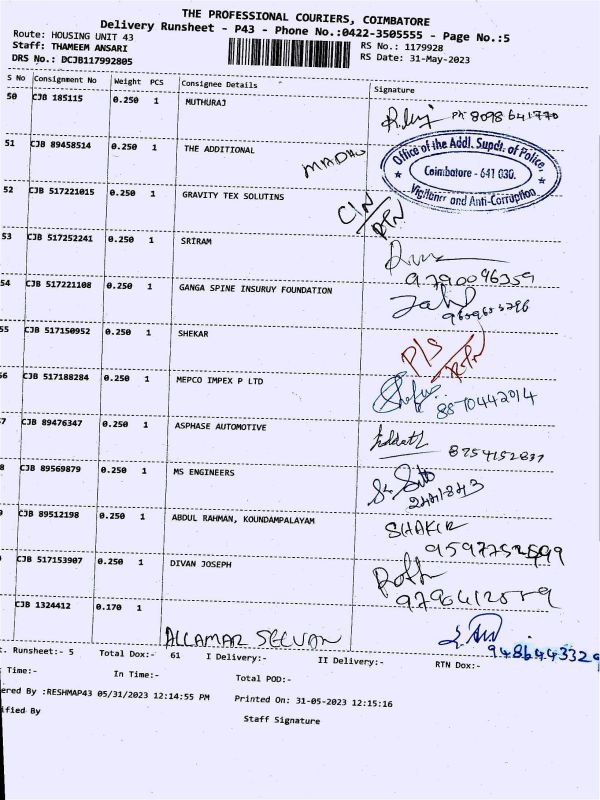 THE PROFESSIONAL COURIERS, COIMBATORE
Delivery Runsheet - P43 - Phone No.:0422-3505555 - Page No.:5
Route: HOUSING UNIT 43
RS No.: 1179928
Staff: THAMEEM ANSARI
RS Date: 31-May-2023
DRS No.: DCJB117992805
S No Consignment No Weight PCS Consignee Details Signature
50 CJB 185115 0.250 1 MUTHURAJ 8098641770
51 CJB 89458514 0.250 1 THE ADDITIONAL MADHU
Office of the Addl. Supdt. of Police,
Coimbatore - 641 030.
Vigilance and Anti-Corruption
52 CJB 517221015 0.250 1 GRAVITY TEX SOLUTINS C/N RTN
53 CJB 517252241 0.250 1 SRIRAM 9790096359
54 CJB 517221108 0.250 1 GANGA SPINE INSURUY FOUNDATION
55 CJB 517150952 0.250 1 SHEKAR P/S RTN
56 CJB 517188284 0.250 1 MEPCO IMPEX P LTD 8870442014
7 CJB 89476347 0.250 1 ASPHASE AUTOMOTIVE 8754152837
8 CJB 89569879 0.250 1 MS ENGINEERS 2441843
9 CJB 89512198 0.250 1 ABDUL RAHMAN, KOUNDAMPALAYAM SHAKIR
CJB 517153907 0.250 1 DIVAN JOSEPH
CJB 1324412 0.170 1
ALLAMAR SELVAN 9486443329
t. Runsheet:- 5 Total Dox:- 61 I Delivery:- II Delivery:- RTN Dox:-
Time:- In Time:- Total POD:-
ered By :RESHMAP43 05/31/2023 12:14:55 PM Printed On: 31-05-2023 12:15:16
ified By Staff Signature